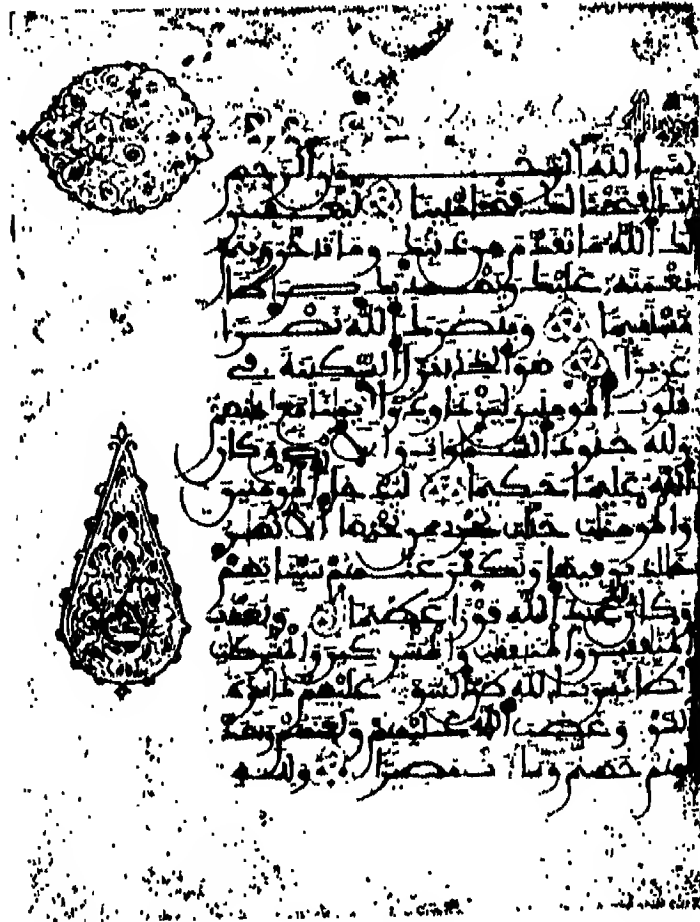 بسم الله الرحمن الرحيم
إنا فتحنا لك فتحا مبينا ليغفر
لك الله ما تقدم من ذنبك وما تأخر ويتم
نعمته عليك ويهديك صراطا
مستقيما وينصرك الله نصرا
عزيزا هو الذي أنزل السكينة في
قلوب المومنين ليزدادوا إيمانا مع إيمانهم
ولله جنود السموات والأرض وكان
الله عليما حكيما ليدخل المومنين
والمومنات جنات تجري من تحتها الأنهار
خالدين فيها ويكفر عنهم سيئاتهم
وكان عند الله فوزا عظيما ويعذب
المنافقين والمنافقات والمشركين والمشركات
الظانين بالله ظن السوء عليهم دائرة
السوء وغضب الله عليهم ولعنهم وأعد
لهم جهنم وساءت مصيرا ولله